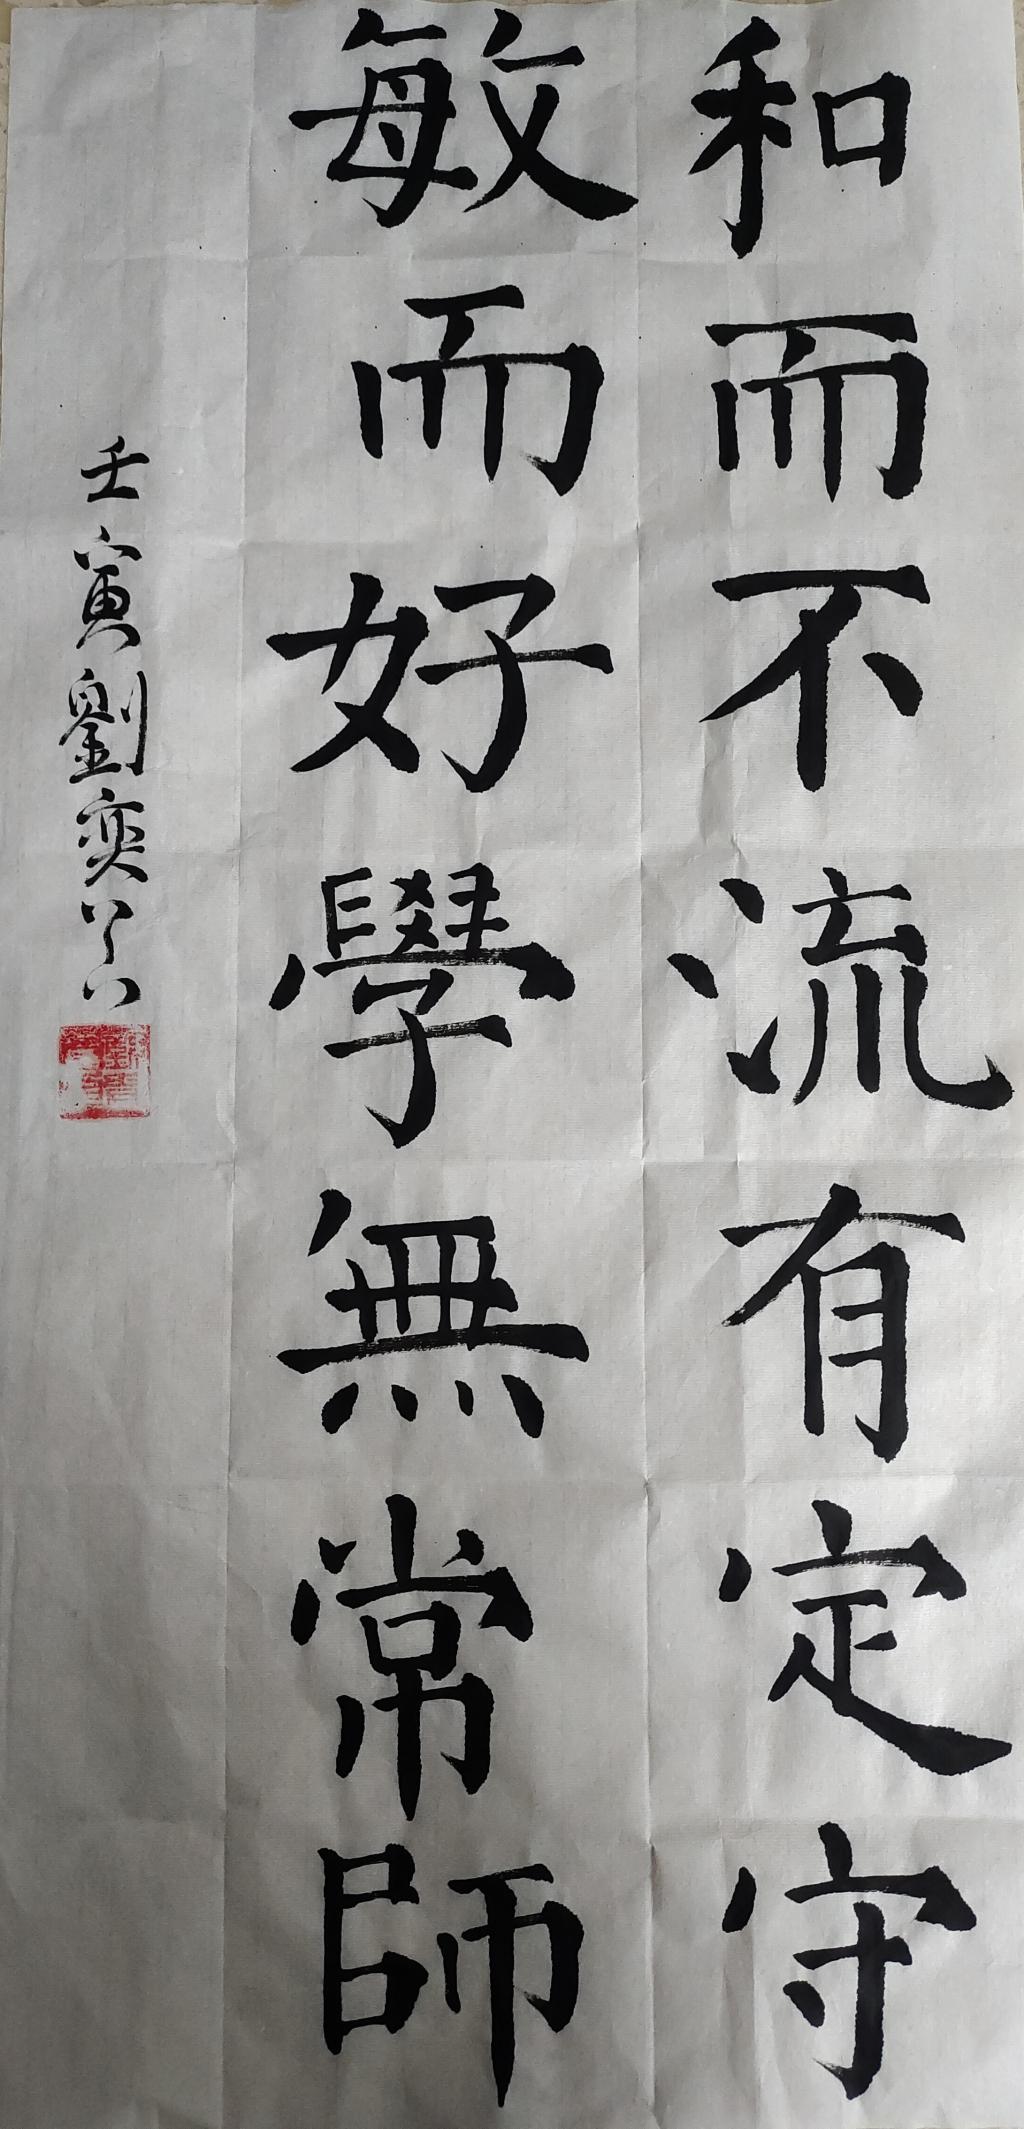 和而不流有定守
敏而好學無常師
壬寅劉奕